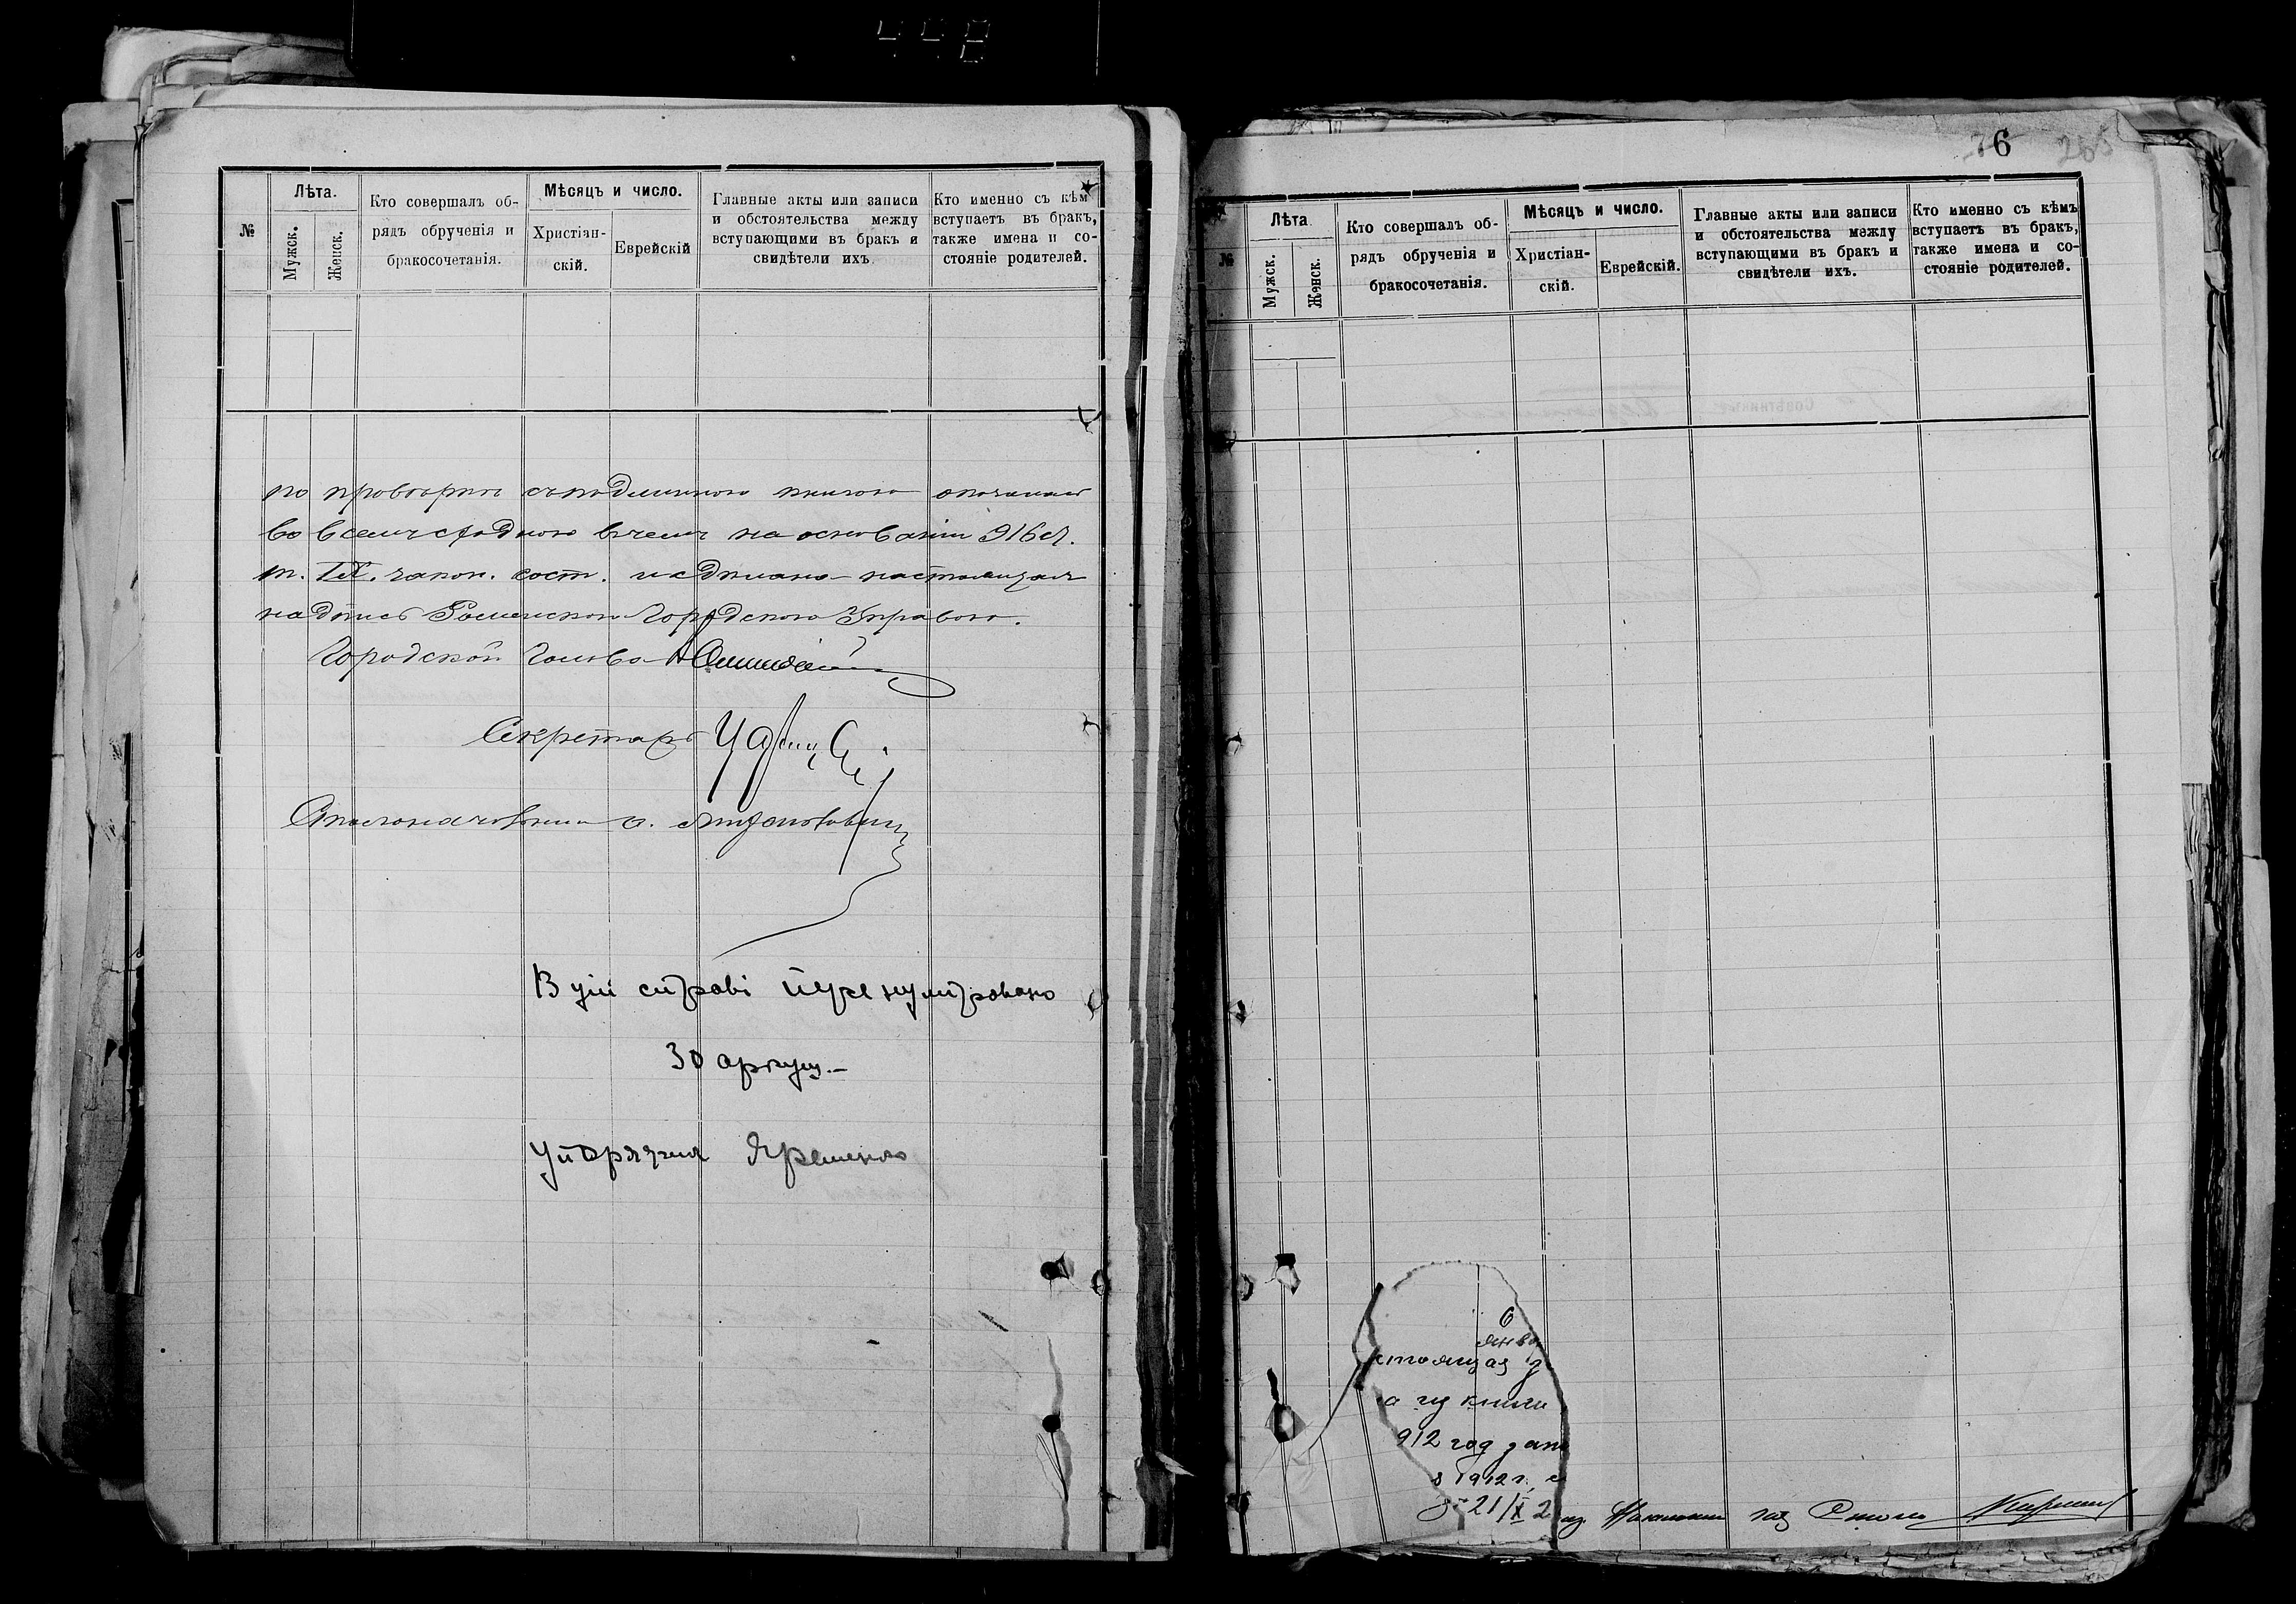 №
Лѣта.
Мужск.
Женск.
Кто совершалъ об-
рядъ обрученія и
бракосочетанія.
Мѣсяцъ и число.
Христіан-
скій.
Еврейскій
Главные акты или записи
и обстоятельства между
вступающими въ бракъ и
свидѣтели ихъ
Кто именно съ кѣм
вступаетъ въ бракъ,
также имена и со-
стояніе родителей.
по провѣркѣ съ подлинною книгою оказалась
во всемъ сходною въ чемъ на основаніи 916 ст.
т. IX. закон. сост. и сдѣлана настоящая
надпись Роменскою Городскою Управою.
Городской Голова
Секретарь
Столоначальникъ
В цій справі перенумеровано
30 аркуш.—
Упорядник Яременко
76
265
№
Лѣта
Мужск.
Женск.
Кто совершалъ об-
рядъ обрученія и
бракосочетанія.
Мѣсяцъ и число.
Христіан-
скій.
Еврейскій.
Главные акты или записи
и обстоятельства между
вступающими въ бракъ и
свидѣтели ихъ.
Кто именно съ кѣмъ
вступаетъ въ бракъ,
также имена и со-
стояніе родителей.
6
янва
стоящая
а из книги
912 год
1912 г.
21/X 2